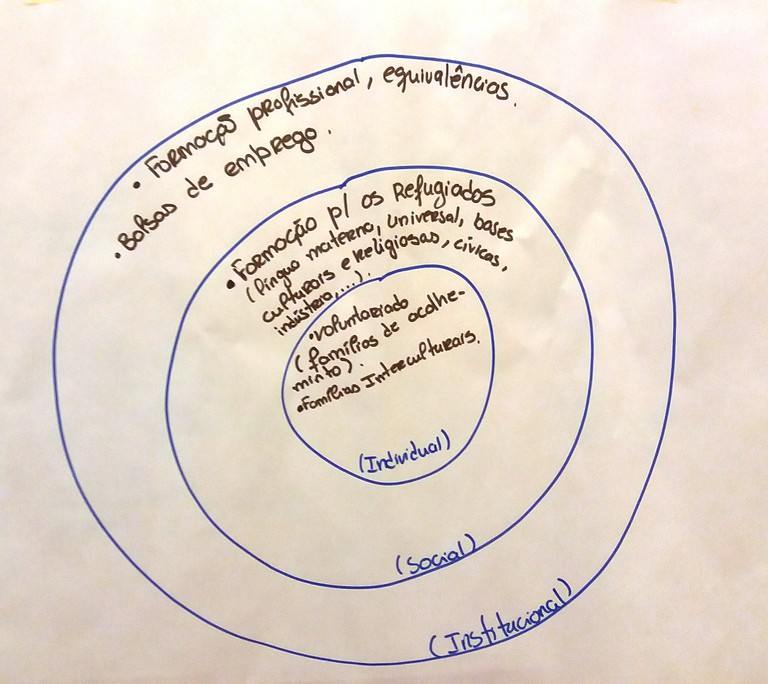 • Formação profissional, equivalências.
• Bolsas de emprego.
• Formação p/ os Refugiados
(língua materna, universal, bases
culturais e religiosas, cívicas,
indústria,...).
• voluntariado
(famílias de acolhe-
minto).
• Famílias Interculturais.
(Individual)
(Social)
(Institucional)